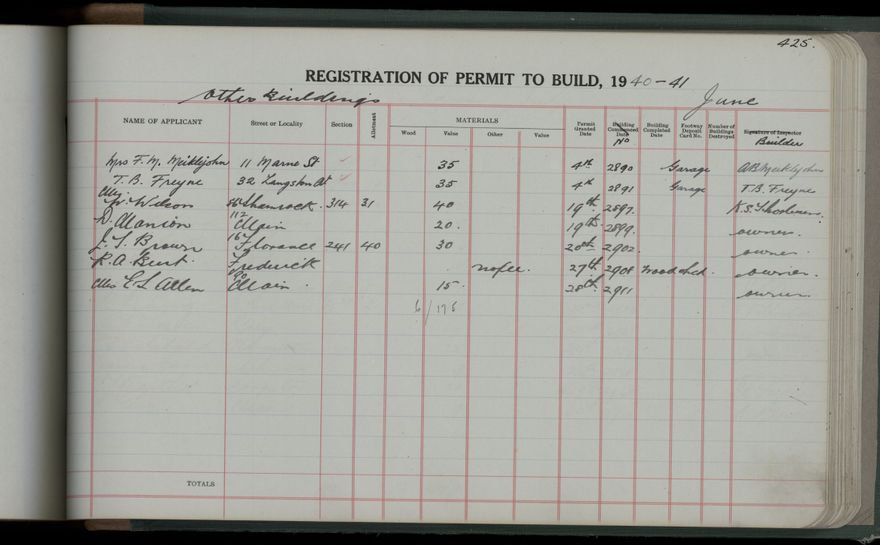 425.
REGISTRATION OF PERMIT TO BUILD, 1940-41
Other Buildings June
NAME OF APPLICANT Street or Locality Section Allotment MATERIALS Wood Value Other Value Permit Granted Date Building Commenced Date No Building Completed Date Footway Deposit Card No. Number of Buildings Destroyed Signature of Inspector Builder
Mrs F. M. Meiklejohn 11 Marne St 35 4th 2890 Garage Meiklejohn
T. B. Freyne 32 Langston St 35 4th 2891 Garage T. B. Freyne
W. Wilson 58 Shamrock. 314 31 40 19th 2897. K. S.
D. Manion 112 Main 20. 19th 2899. owner.
J. S. Brown 16 Florance 241 40 30 20th 2902. owner.
R. A. Frederick no fee. 27th 2908 Wood shed. owner.
E L Allen 90 Main 15. 28th 2911 owner
6/175
TOTALS